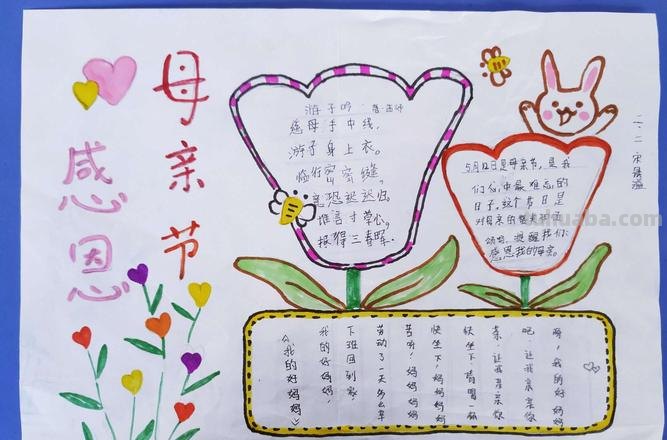 母亲节
感恩
游子吟 唐·孟郊
慈母手中线,
游子身上衣。
临行密密缝,
意恐迟迟归。
谁言寸草心,
报得三春晖。
5月12日是母亲节,是我
们心中最难忘的
日子。这个节日是
对母亲的赞美和
颂扬,提醒我们
感恩我的母亲。
二、二
《我的好妈妈》
我的好妈妈,
下班回到家,
劳动了一天多么辛
苦呀!妈妈妈妈
快坐下,妈妈妈妈
快坐下,请喝一杯
茶,让我亲亲你
吧,让我亲亲你
啊,我的好妈妈